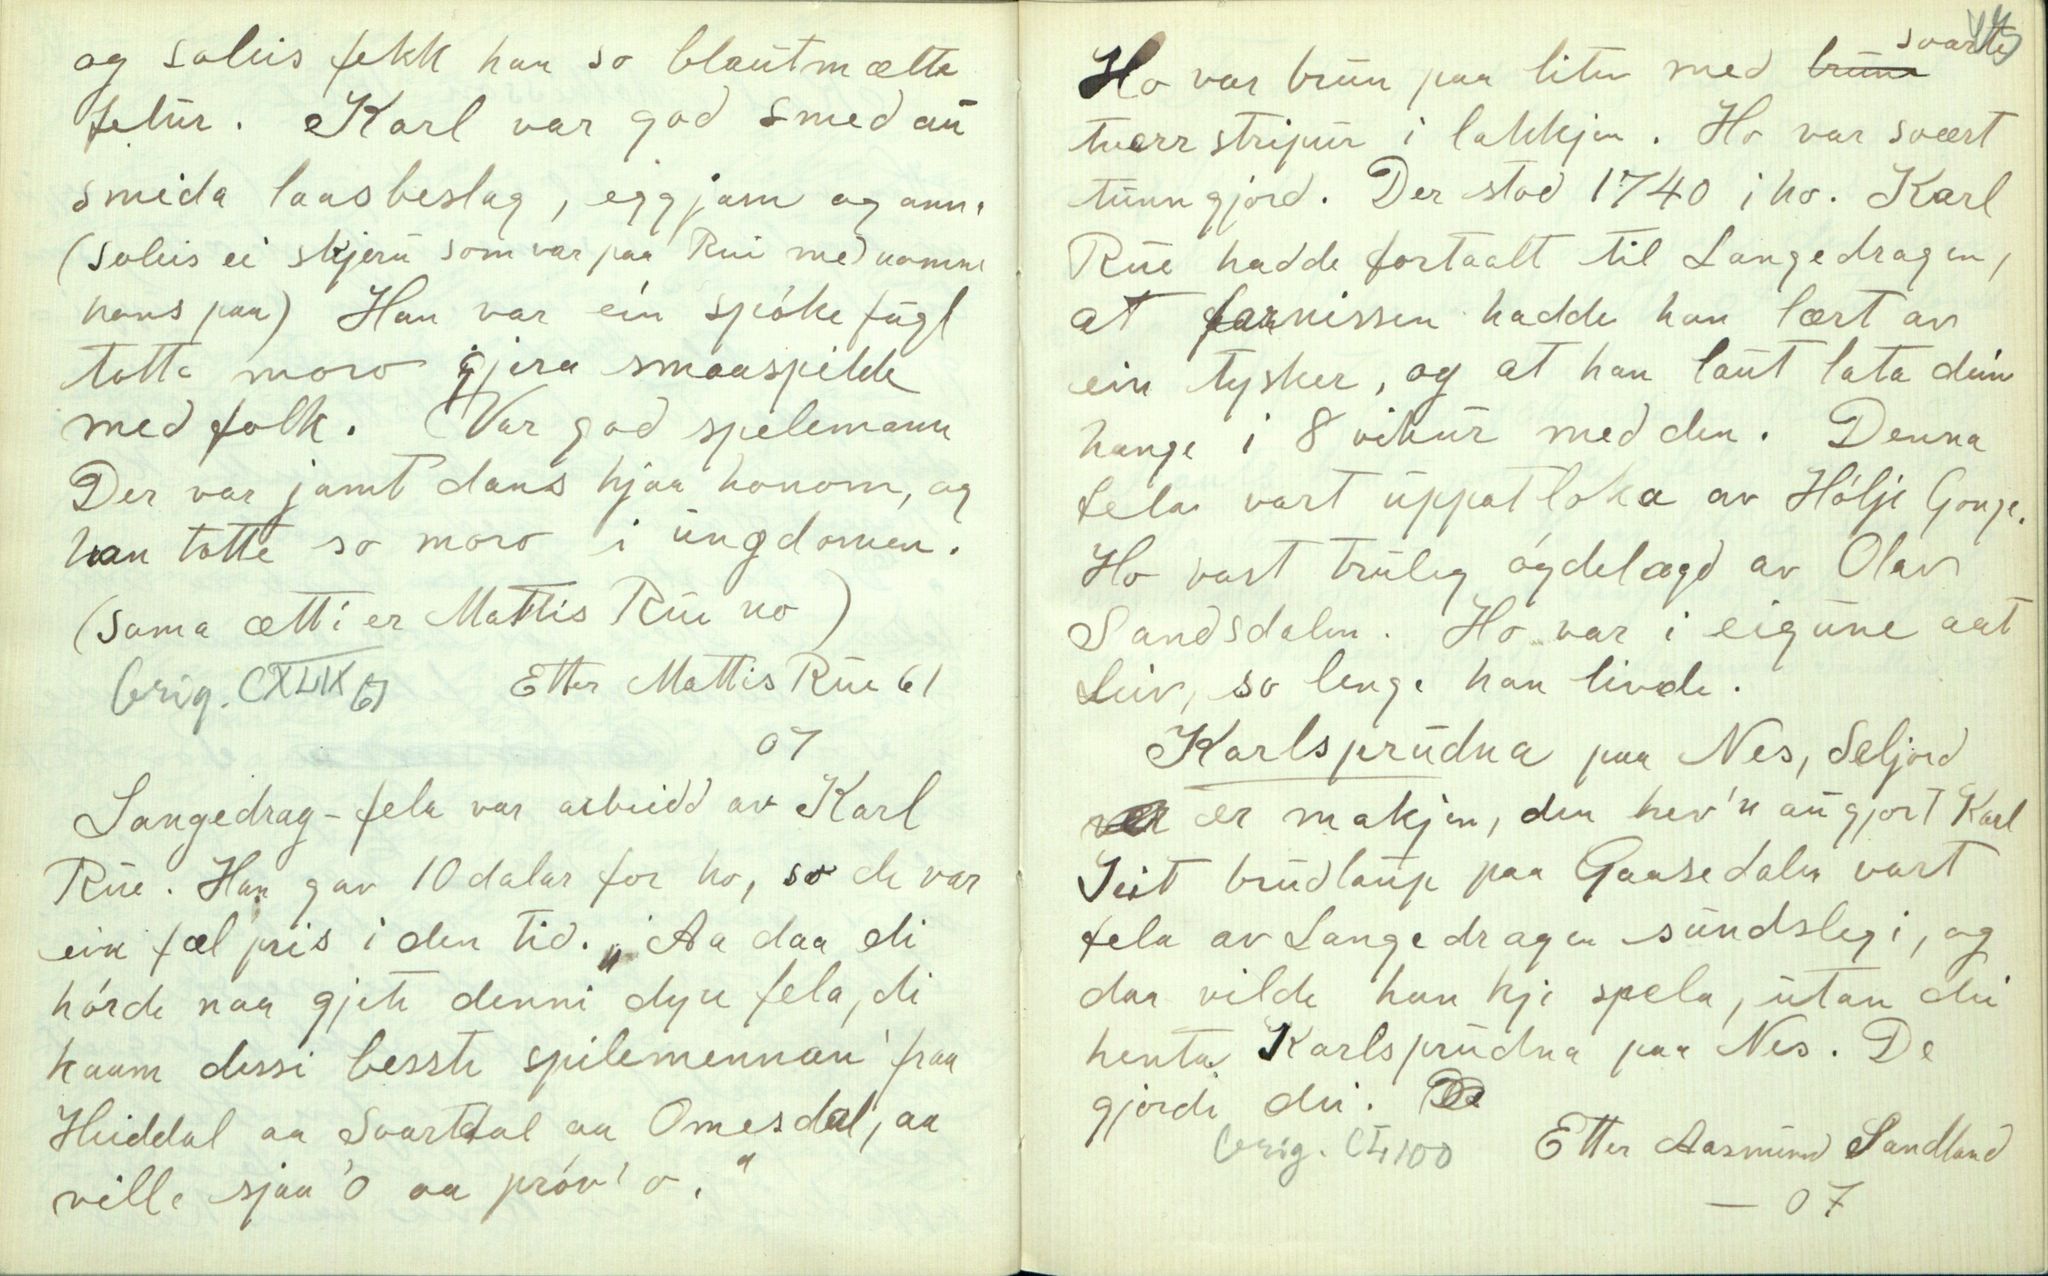 og soleis fekk han so blautmælte
felur. Karl var god smed au
smida laasbeslag, eggjarn og anna
(soleis ei skjeru som var paa Rui med namne
hans paa) Han var ein spókefugl
totte moro gjera smaaspikk
med folk. Var god spelemann
Der var jamt dans hjaa honom, og
han totte so moro i ungdomen.
(sama ætti er Mattis Rue no)
Orig. CXLIX 67 Etter Mattis Rue 61
07
Langedrag-fela var arbeidd av Karl
Rue. Han gav 10 dalar for ho, so de var
ein fæl pris i den tid. „Aa daa di
hórde naa gjete denni dyre fela, di
kaam dessi besste spilemennan' fraa
Heiddal aa Svartdal aa Omesdal, aa
ville sjaa 'o aa próv' o."
Ho var brun paa liten med bruna svarte
tverr stripur i lokkjen. Ho var svært
tunngjord. Der stod 1740 i ho. Karl
Rue hadde fortaalt til Langedragen,
at farnissen hadde han lært av
ein tysker, og at han laut lata dein
hange i 8 vikur med den. Denna
fela vart uppatloka av Hólje Gonge.
Ho vart truleg óydelagd av Olav
Sandsdalen. Ho var i eigune aat
Leiv, so lenge han livde.
Karlsprudna paa Nes, Seljord
er makjen, den hev'n au gjort Karl
I eit brudlaup paa Gaasedalen vart
fela av Langedragen sundslegi, og
daa vilde han kje spela, utan dei
henta Karlsprudna paa Nes. De
gjorde dei.
Orig. CL, 100 Etter Aasmund Sandland
— 07